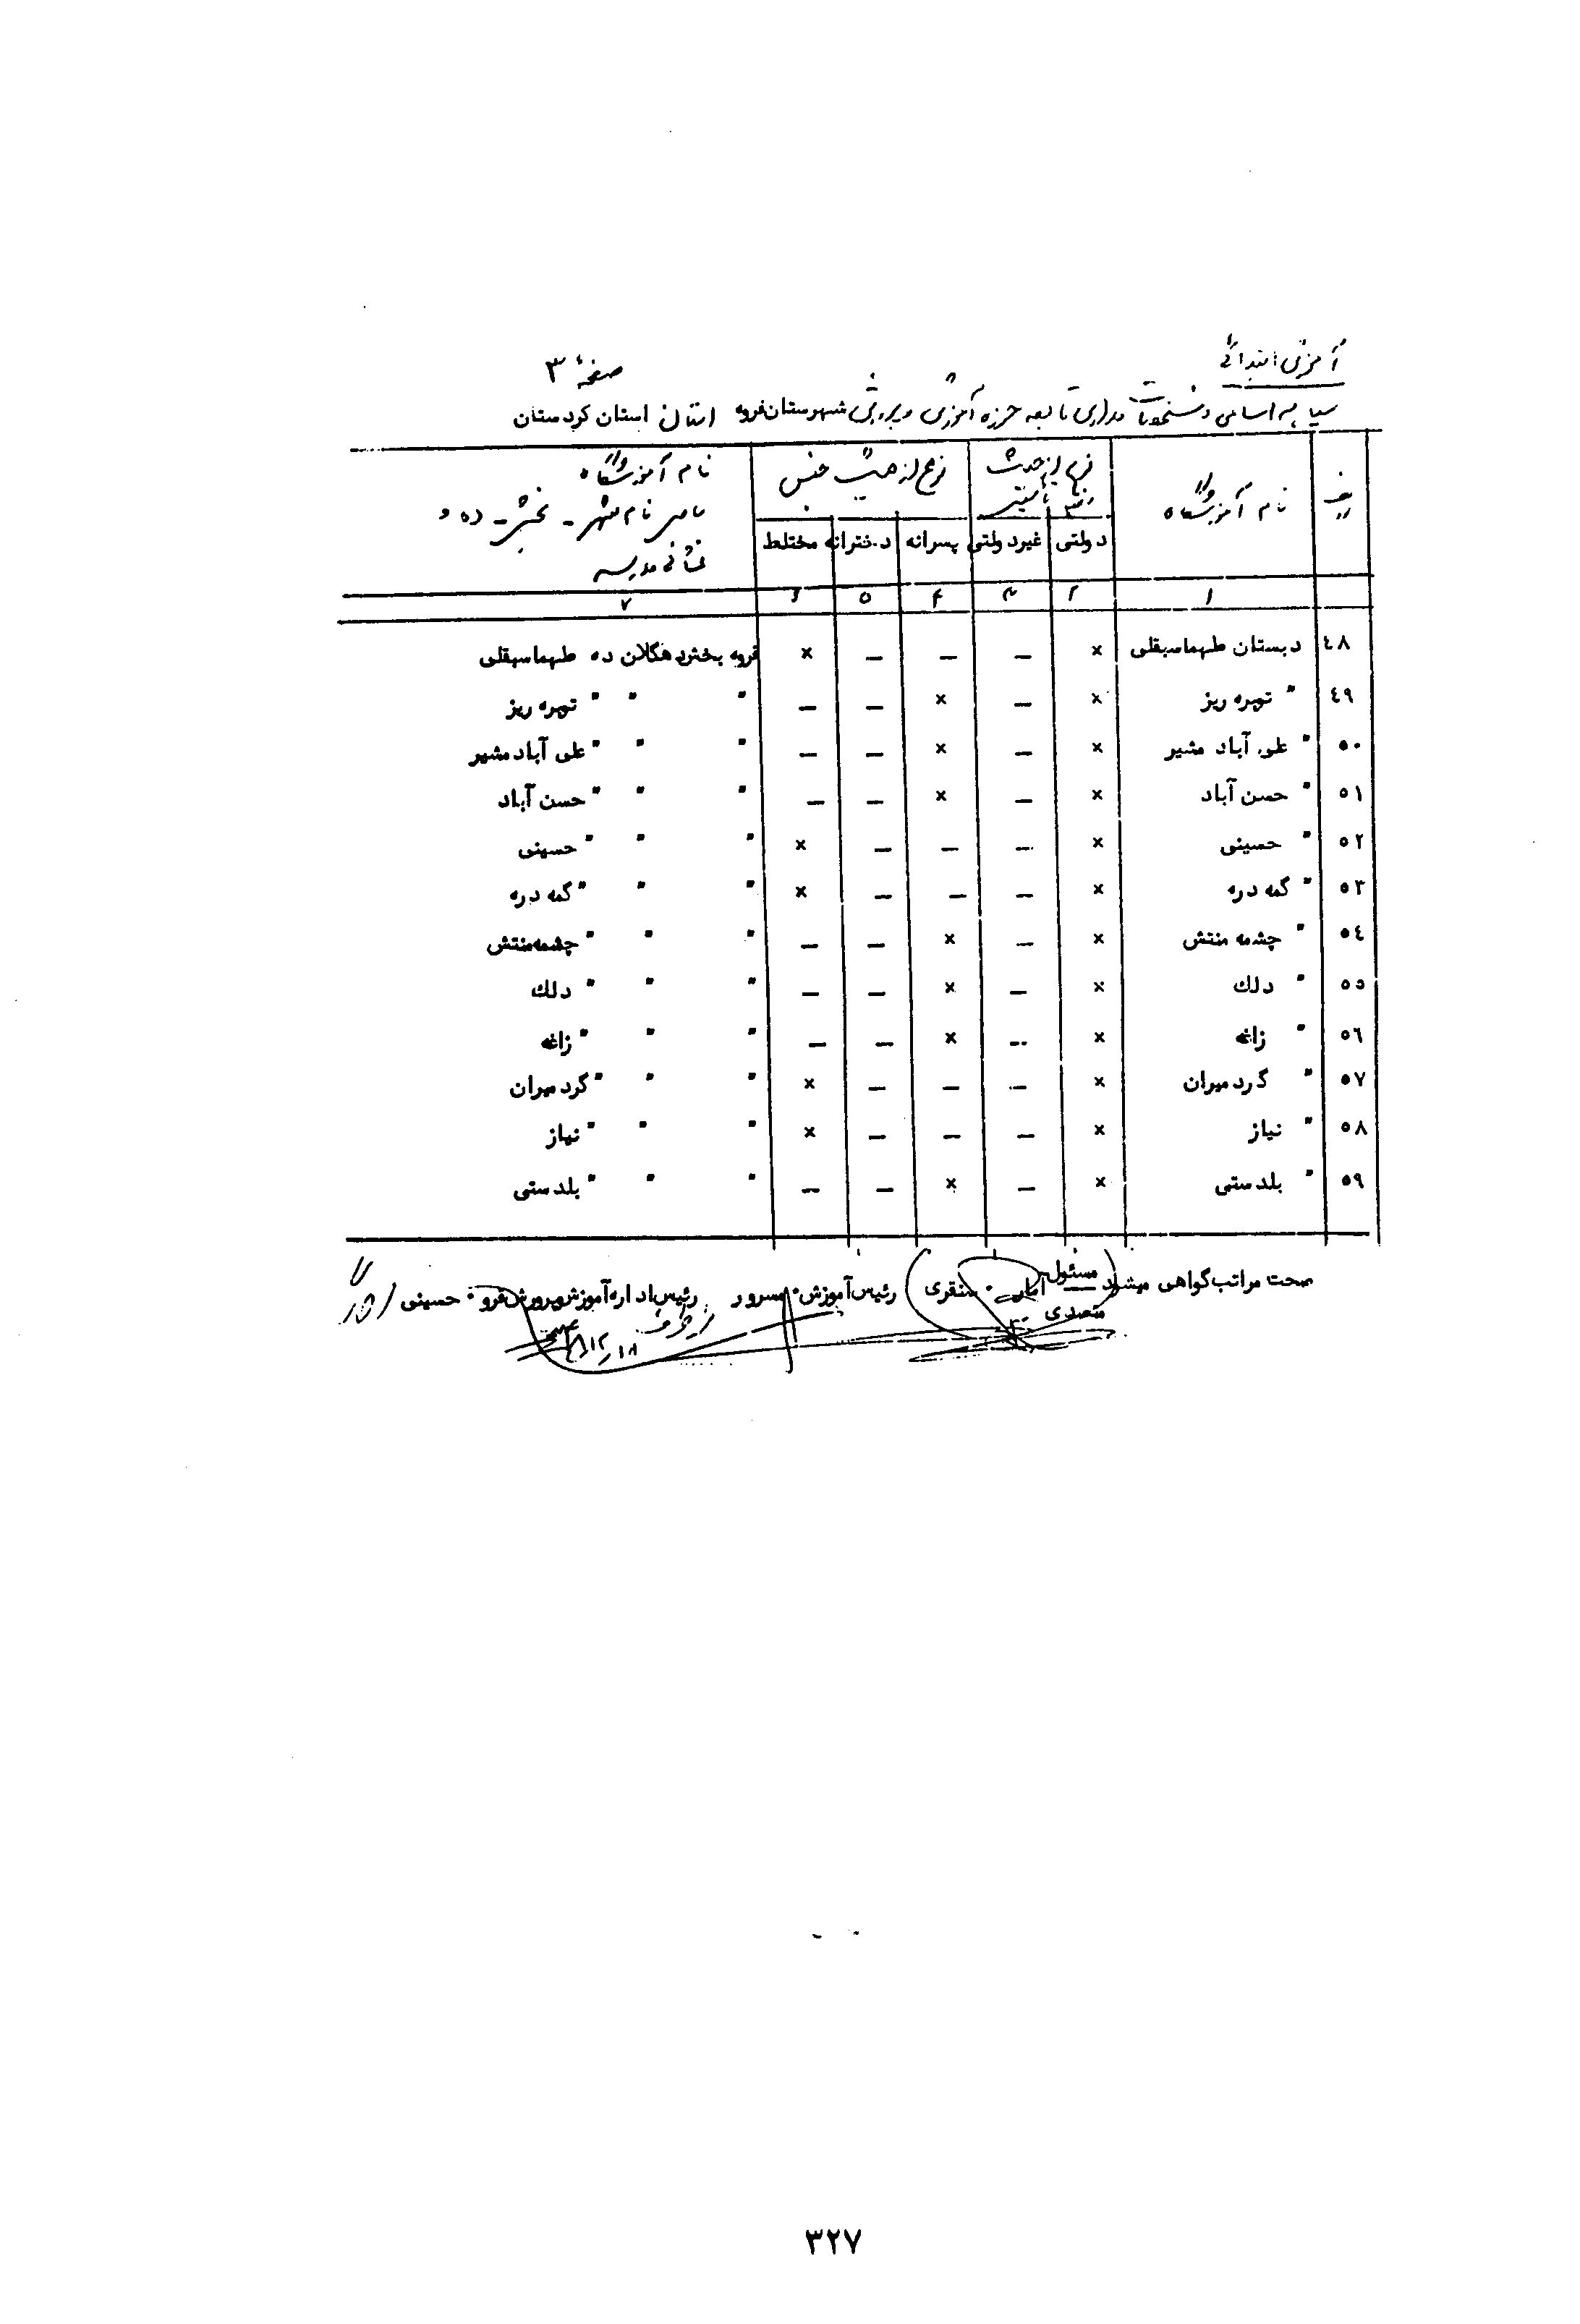 آموزش ابتدائی
صفحهٔ ۳
سیاهه اسامی و مشخصات مدارس تابعه حوزه آموزش و پرورش شهرستان قروه استان استان کردستان
ردیف نام آموزشگاه نوع از حیث نوع از حیث جنس نام آموزشگاه
نام شهر - بخش - ده و
دولتی غیردولتی پسرانه دخترانه مختلط
نشانی مدرسه
۱ ۲ ۳ ۴ ۵ ۶ ۷
٤۸ دبستان طهماسبقلی × — — — × قروه بخش دهگلان ده طهماسبقلی
٤۹ " تهره ریز × — × — — " " " تهره ریز
۵۰ " علی آباد مشیر × — × — — " " " علی آباد مشیر
۵۱ " حسن آباد × — × — — " " " حسن آباد
۵۲ " حسینی × — — — × " " " حسینی
۵۳ " گمه دره × — — — × " " " گمه دره
۵٤ " چشمه منتش × — × — — " " " چشمه منتش
۵۵ " دلك × — × — — " " " دلك
۵٦ " زاغه × — × — — " " " زاغه
۵۷ " گرد میران × — — — × " " " گرد میران
۵۸ " نیاز × — — — × " " " نیاز
۵۹ " بلدستی × — × — — " " " بلدستی
صحت مراتب گواهی میشود مسئول آمار سنقری رئیس آموزش سرور رئیس اداره آموزش و پرورش قروه حسینی
متصدی
۳۲۷